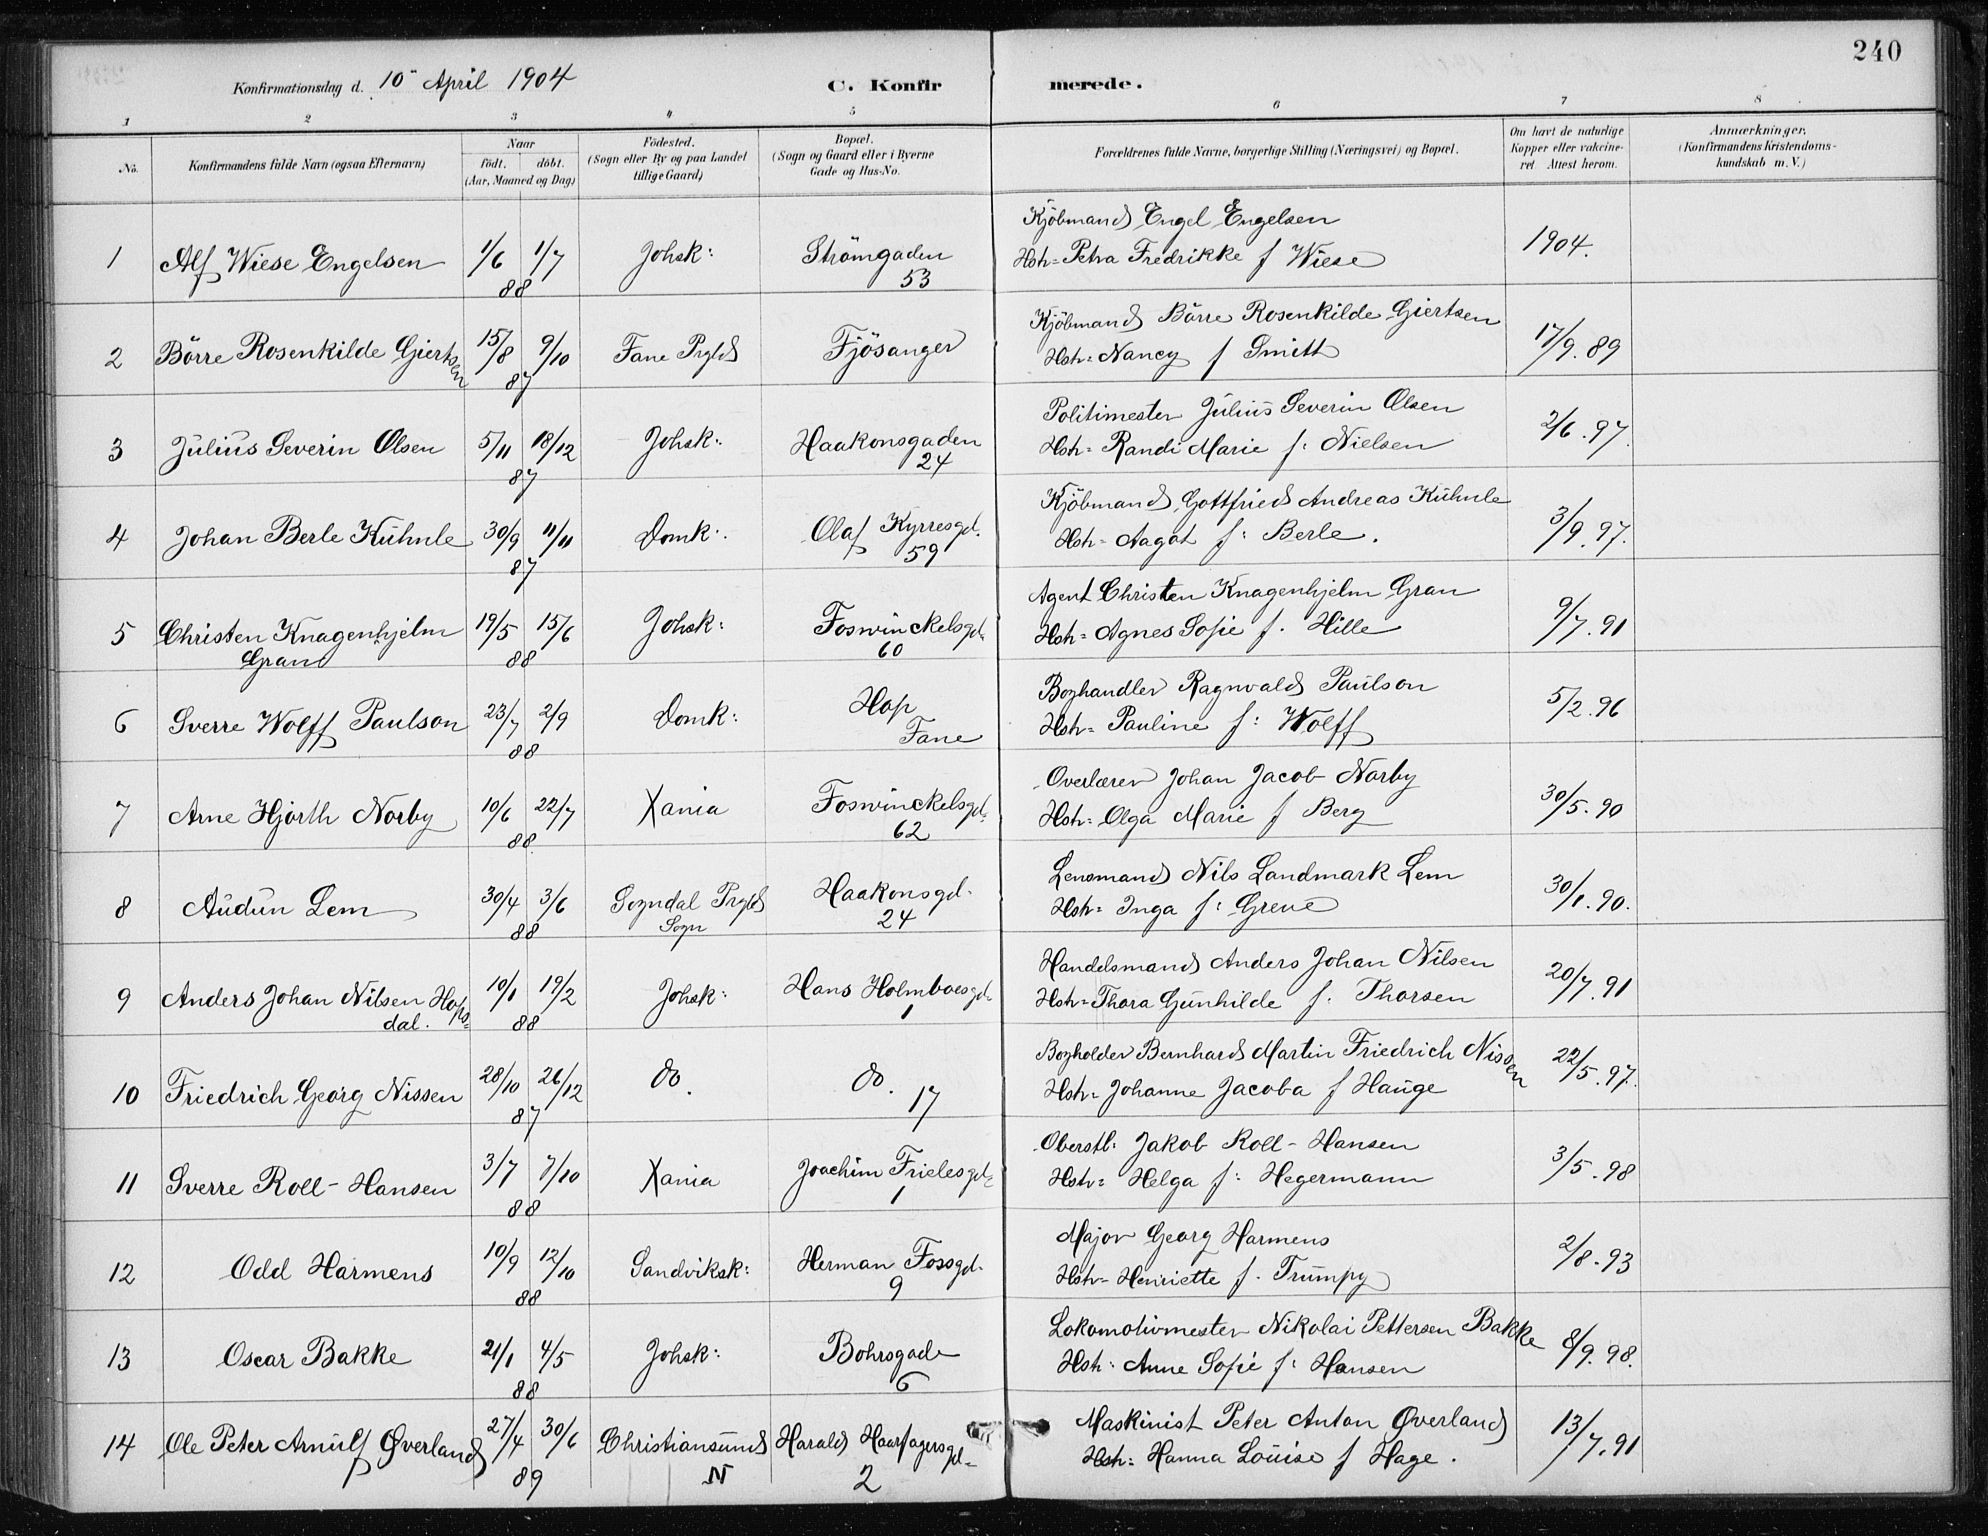 240
Konfirmationsdag d. 10 April 1904
C. Konfirmerede.
1 2 3 4 5 6 7 8
No.
Konfirmandens fulde Navn (ogsaa Efternavn)
Naar
födt. döbt.
(Aar, Maaned og Dag)
Födested.
(Sogn eller By og paa Landet
tillige Gaard)
Bopæl.
(Sogn og Gaard eller i Byerne
Gade og Hus-No.
Forældrenes fulde Navne, borgerlige Stilling (Næringsvei) og Bopæl.
Om havt de naturlige
Kopper eller vakcine-
ret. Attest herom.
Anmærkninger.
(Konfirmandens Kristendoms-
kundskab m. V.)
1 Alf Wiese Engelsen 1/6 1/7 88 Johsk: Strömgaden 53
Kjöbmand Engel Engelsen
Hstr= Petra Fredrikke f Wiese
1904.
2 Börre Rosenkilde Giertsen 15/8 9/10 87 Fane Prgld Fjösanger
Kjöbmand Börre Rosenkilde Giertsen
Hstr= Nancy f Smitt
17/9. 89
3 Julius Severin Olsen 5/11 18/12 87 Johsk: Haakonsgaden 24
Politimester Julius Severin Olsen
Hstr= Randi Marie f: Nielsen
2/6. 97.
4 Johan Berle Kühnle 30/9 11/11 87 Domk: Olaf Kyrresgd. 59
Kjöbmand Gottfried Andreas Kühnle
Hstr= Aagot f: Berle.
3/9. 97.
5 Christen Knagenhjelm
Gran 19/5 15/6 88 Johsk: Foswinckelsgd. 60
Agent Christen Knagenhjelm Gran
Hstr= Agnes Sofie f. Hille
9/7. 91
6 Sverre Wolff Paulson 23/7 2/9 88 Domk: Hop
Fane
Boghandler Ragnvald Paulson
Hstr= Pauline f: Wolff
5/2. 96
7 Arne Hjorth Norby 10/6 22/7 88 Xania Foswinckelsgd. 62
Overlærer Johan Jacob Norby
Hstr= Olga Marie f Berg
30/5. 90
8 Audun Lem 30/4 3/6 88 Sogndal Prgld
Sogn Haakonsgd. 24
Lensmand Nils Landmark Lem
Hstr= Inga f: Greve
30/1. 90.
9 Anders Johan Nilsen Hops=
dal. 10/1 19/2 88 Johsk: Hans Holmboesgd. 1
Handelsmand Anders Johan Nilsen
Hstr= Thora Gunhilde f. Thorsen
20/7. 91
10 Friedrich Georg Nissen 28/10 26/12 87 do. do. 17
Bogholder Bernhard Martin Friedrich Nissen
Hstr= Johanne Jacoba f Hauge
22/5. 97.
11 Sverre Roll-Hansen 3/7 7/10 88 Xania Joachim Frielesgd. 1
Oberstl: Jakob Roll-Hansen
Hstr= Helga f: Hegermann
3/5. 98
12 Odd Harmens 10/9 12/10 88 Sandviksk: Herman Fossgd. 9
Major Georg Harmens
Hstr= Henriette f. Trumpy
2/8. 93
13 Oscar Bakke 21/1 4/5 88 Johsk: Bohrsgade 6
Lokomotivmester Nikolai Pettersen Bakke
Hstr: Anne Sofie f: Hansen
8/9. 98.
14 Ole Peter Arnulf Øverland 27/4 30/6 89 Christiansund
N Harald Haarfagersgd. 2
Maskinist Peter Anton Øverland
Hstr: Hanna Louise f Hage.
13/7. 91